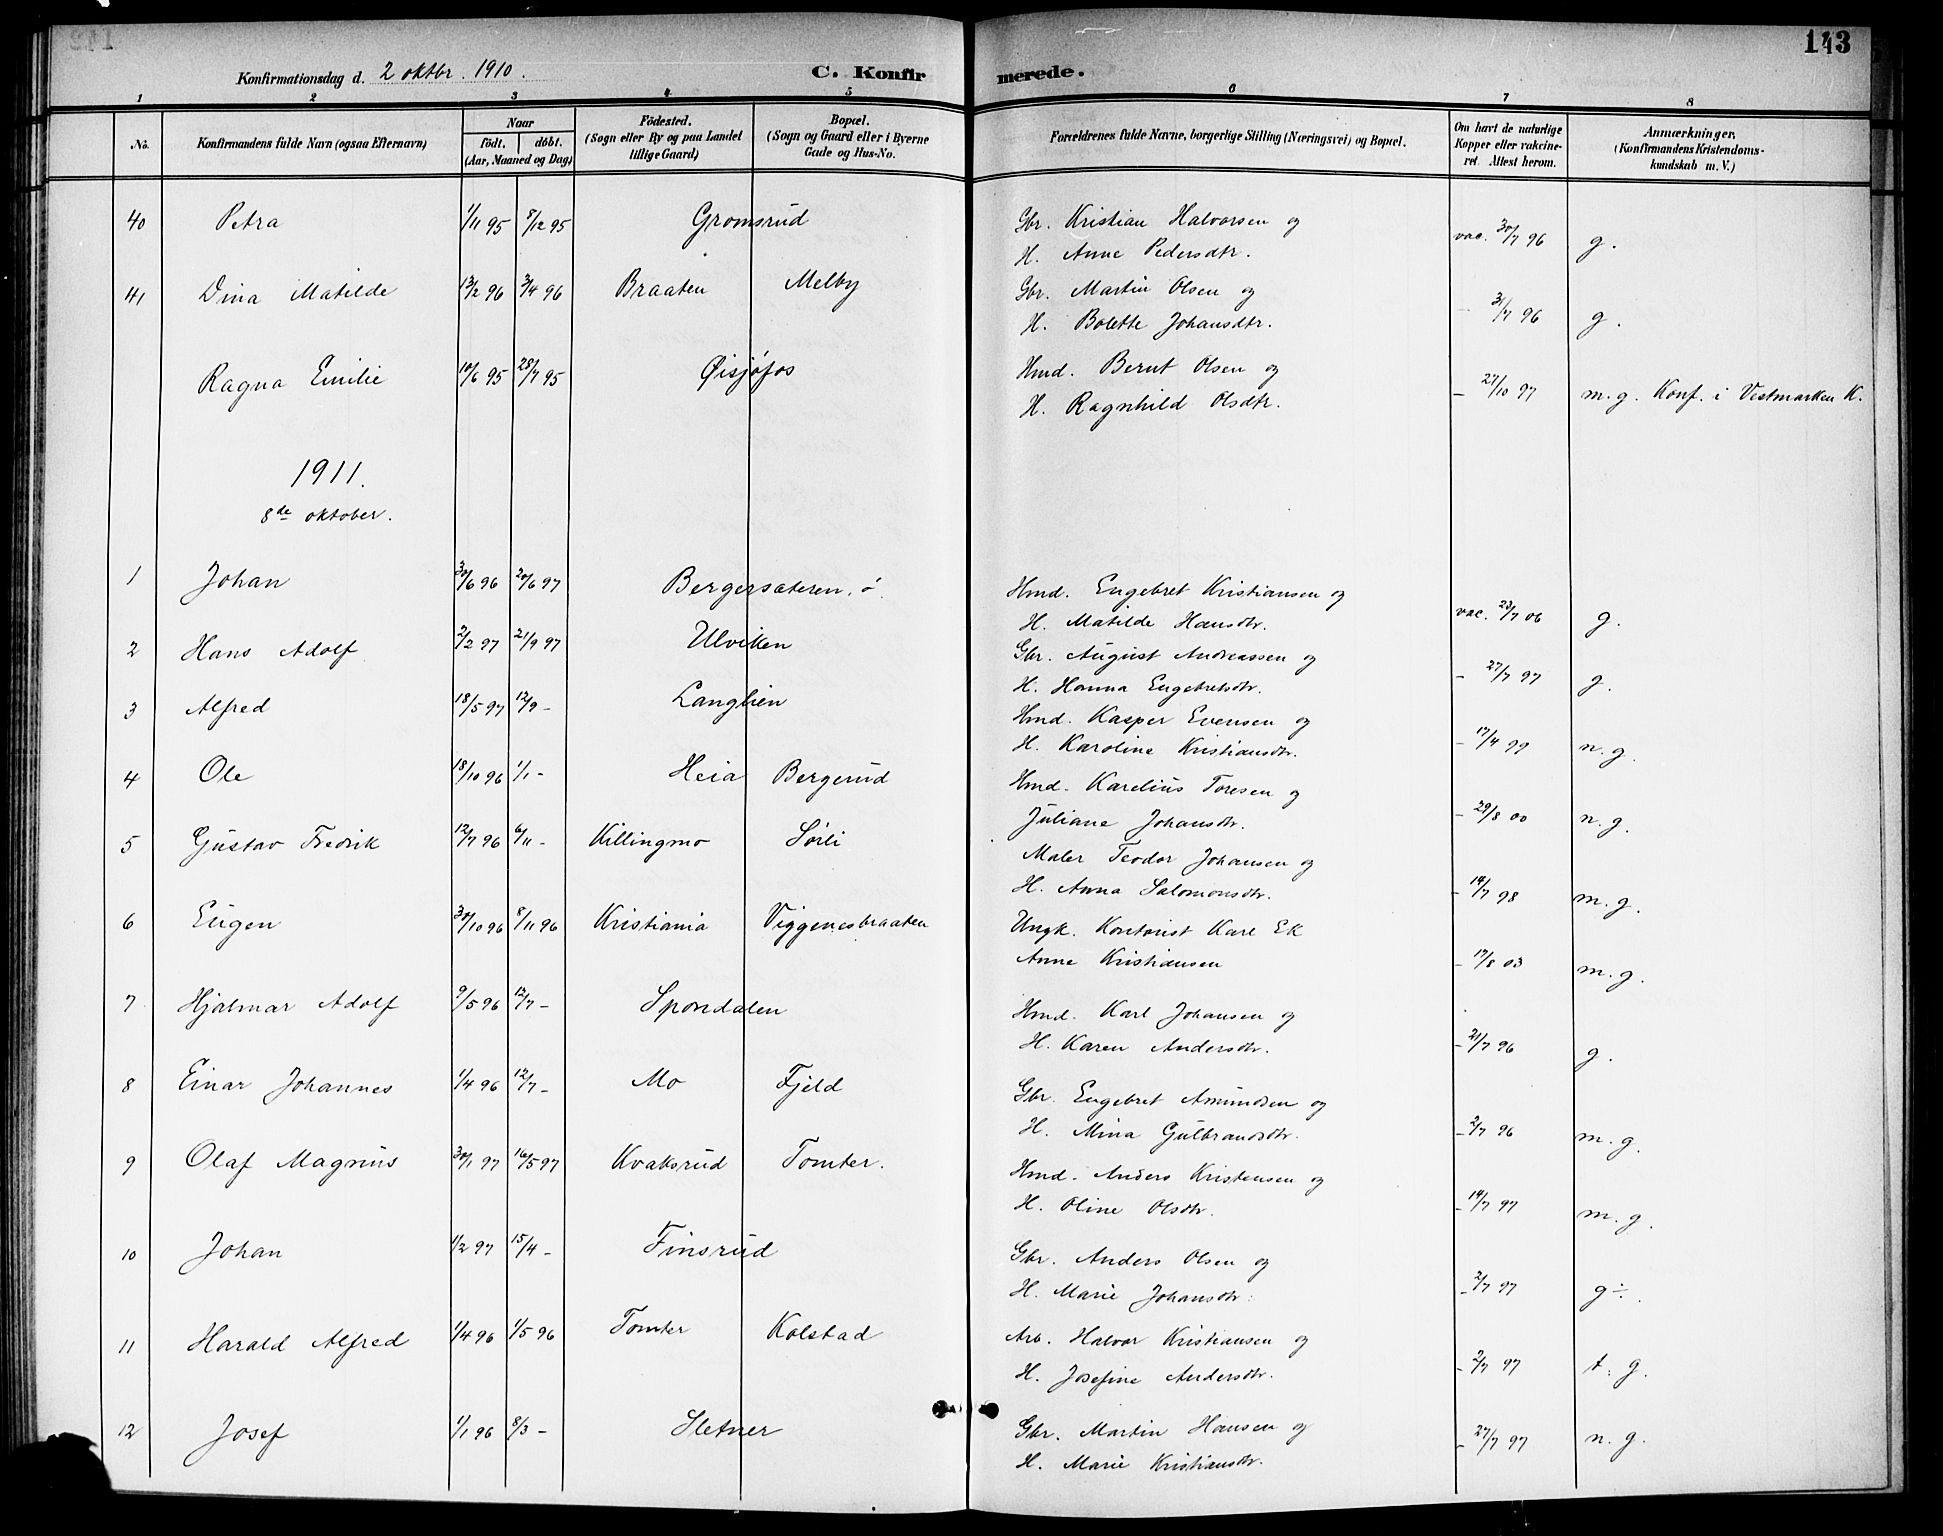 113
Konfirmationsdag d. 2 oktbr. 1910.
C. Konfirmerede.
1 2 3 4 5 6 7 8
No. | Konfirmandens fulde Navn (ogsaa Efternavn) | Naar födt. döbt. (Aar, Maaned og Dag) | Födested. (Sogn eller By og paa Landet tillige Gaard) | Bopæl. (Sogn og Gaard eller i Byerne Gade og Hus-No.) | Forældrenes fulde Navne, borgerlige Stilling (Næringsvei) og Bopæl. | Om havt de naturlige Kopper eller vakcineret. Attest herom. | Anmærkninger, (Konfirmandens Kristendomskundskab m. V.)
40 Petra 1/11 95 8/12 95 Gromsrud Gbr. Kristian Halvorsen og
H. Anne Pedersdtr. vac. 30/7 96 g.
41 Dina Matilde 13/2 96 3/4 96 Braaten Melby Gbr. Martin Olsen og
H. Bolette Johansdtr. - 31/7 96 g.
Ragna Emilie 10/6 95 28/7 95 Øisjøfos Hmd. Bernt Olsen og
H. Ragnhild Olsdtr. - 27/10 97 m.g. Konf. i Vestmarken K.
1911.
8de oktober.
1 Johan 30/6 96 20/6 97 Bergersæteren, ö Hmd. Engebret Kristiansen og
H. Matilde Hansdtr. vac. 23/7 06 g.
2 Hans Adolf 2/2 97 21/9 97 Ulviken Gbr. August Andreassen og
H. Hanna Engebretsdtr. - 27/7 97 g.
3 Alfred 18/5 97 12/9 - Langlien Hmd. Kasper Evensen og
H. Karoline Kristiansdtr. - 17/4 99 n.g.
4 Ole 18/10 96 1/1 - Heia Bergerud Hmd. Karelius Toresen og
Juliane Johansdtr. - 29/8 00 n.g.
5 Gustav Fredrik 12/7 96 6/11 - Killingmo Sörli Maler Teodor Johansen og
H. Anna Salomonsdtr. - 14/7 98 m.g.
6 Eugen 30/10 96 8/11 96 Kristiania Viggenesbraaten Ungk. Kontorist Karl Ek
Anne Kristiansen - 17/8 03 m.g.
7 Hjalmar Adolf 9/5 96 12/7 - Spondalen Hmd. Karl Johansen og
H. Karen Andersdtr. - 21/7 96 g.
8 Einar Johannes 1/4 96 12/7 - Mo Fjeld Gbr. Engebret Amundsen og
H. Mina Gulbrandsdtr. - 2/7 96 m.g.
9 Olaf Magnus 30/1 97 16/5 97 Kvaksrud Tomter. Hmd. Anders Kristensen og
H. Oline Olsdtr. - 14/7 97 m.g.
10 Johan 1/2 97 15/4 - Finsrud Gbr. Anders Olsen og
H. Marie Johansdtr. - 2/7 97 g÷.
11 Harald Alfred 1/4 96 1/5 96 Tomter Kolstad Arb. Halvor Kristiansen og
H. Josefine Andersdtr. - 2/7 97 t.g.
12 Josef 1/1 96 8/3 - Sletner Gbr. Martin Hansen og
H. Marie Kristiansdtr. - 27/7 97 n.g.